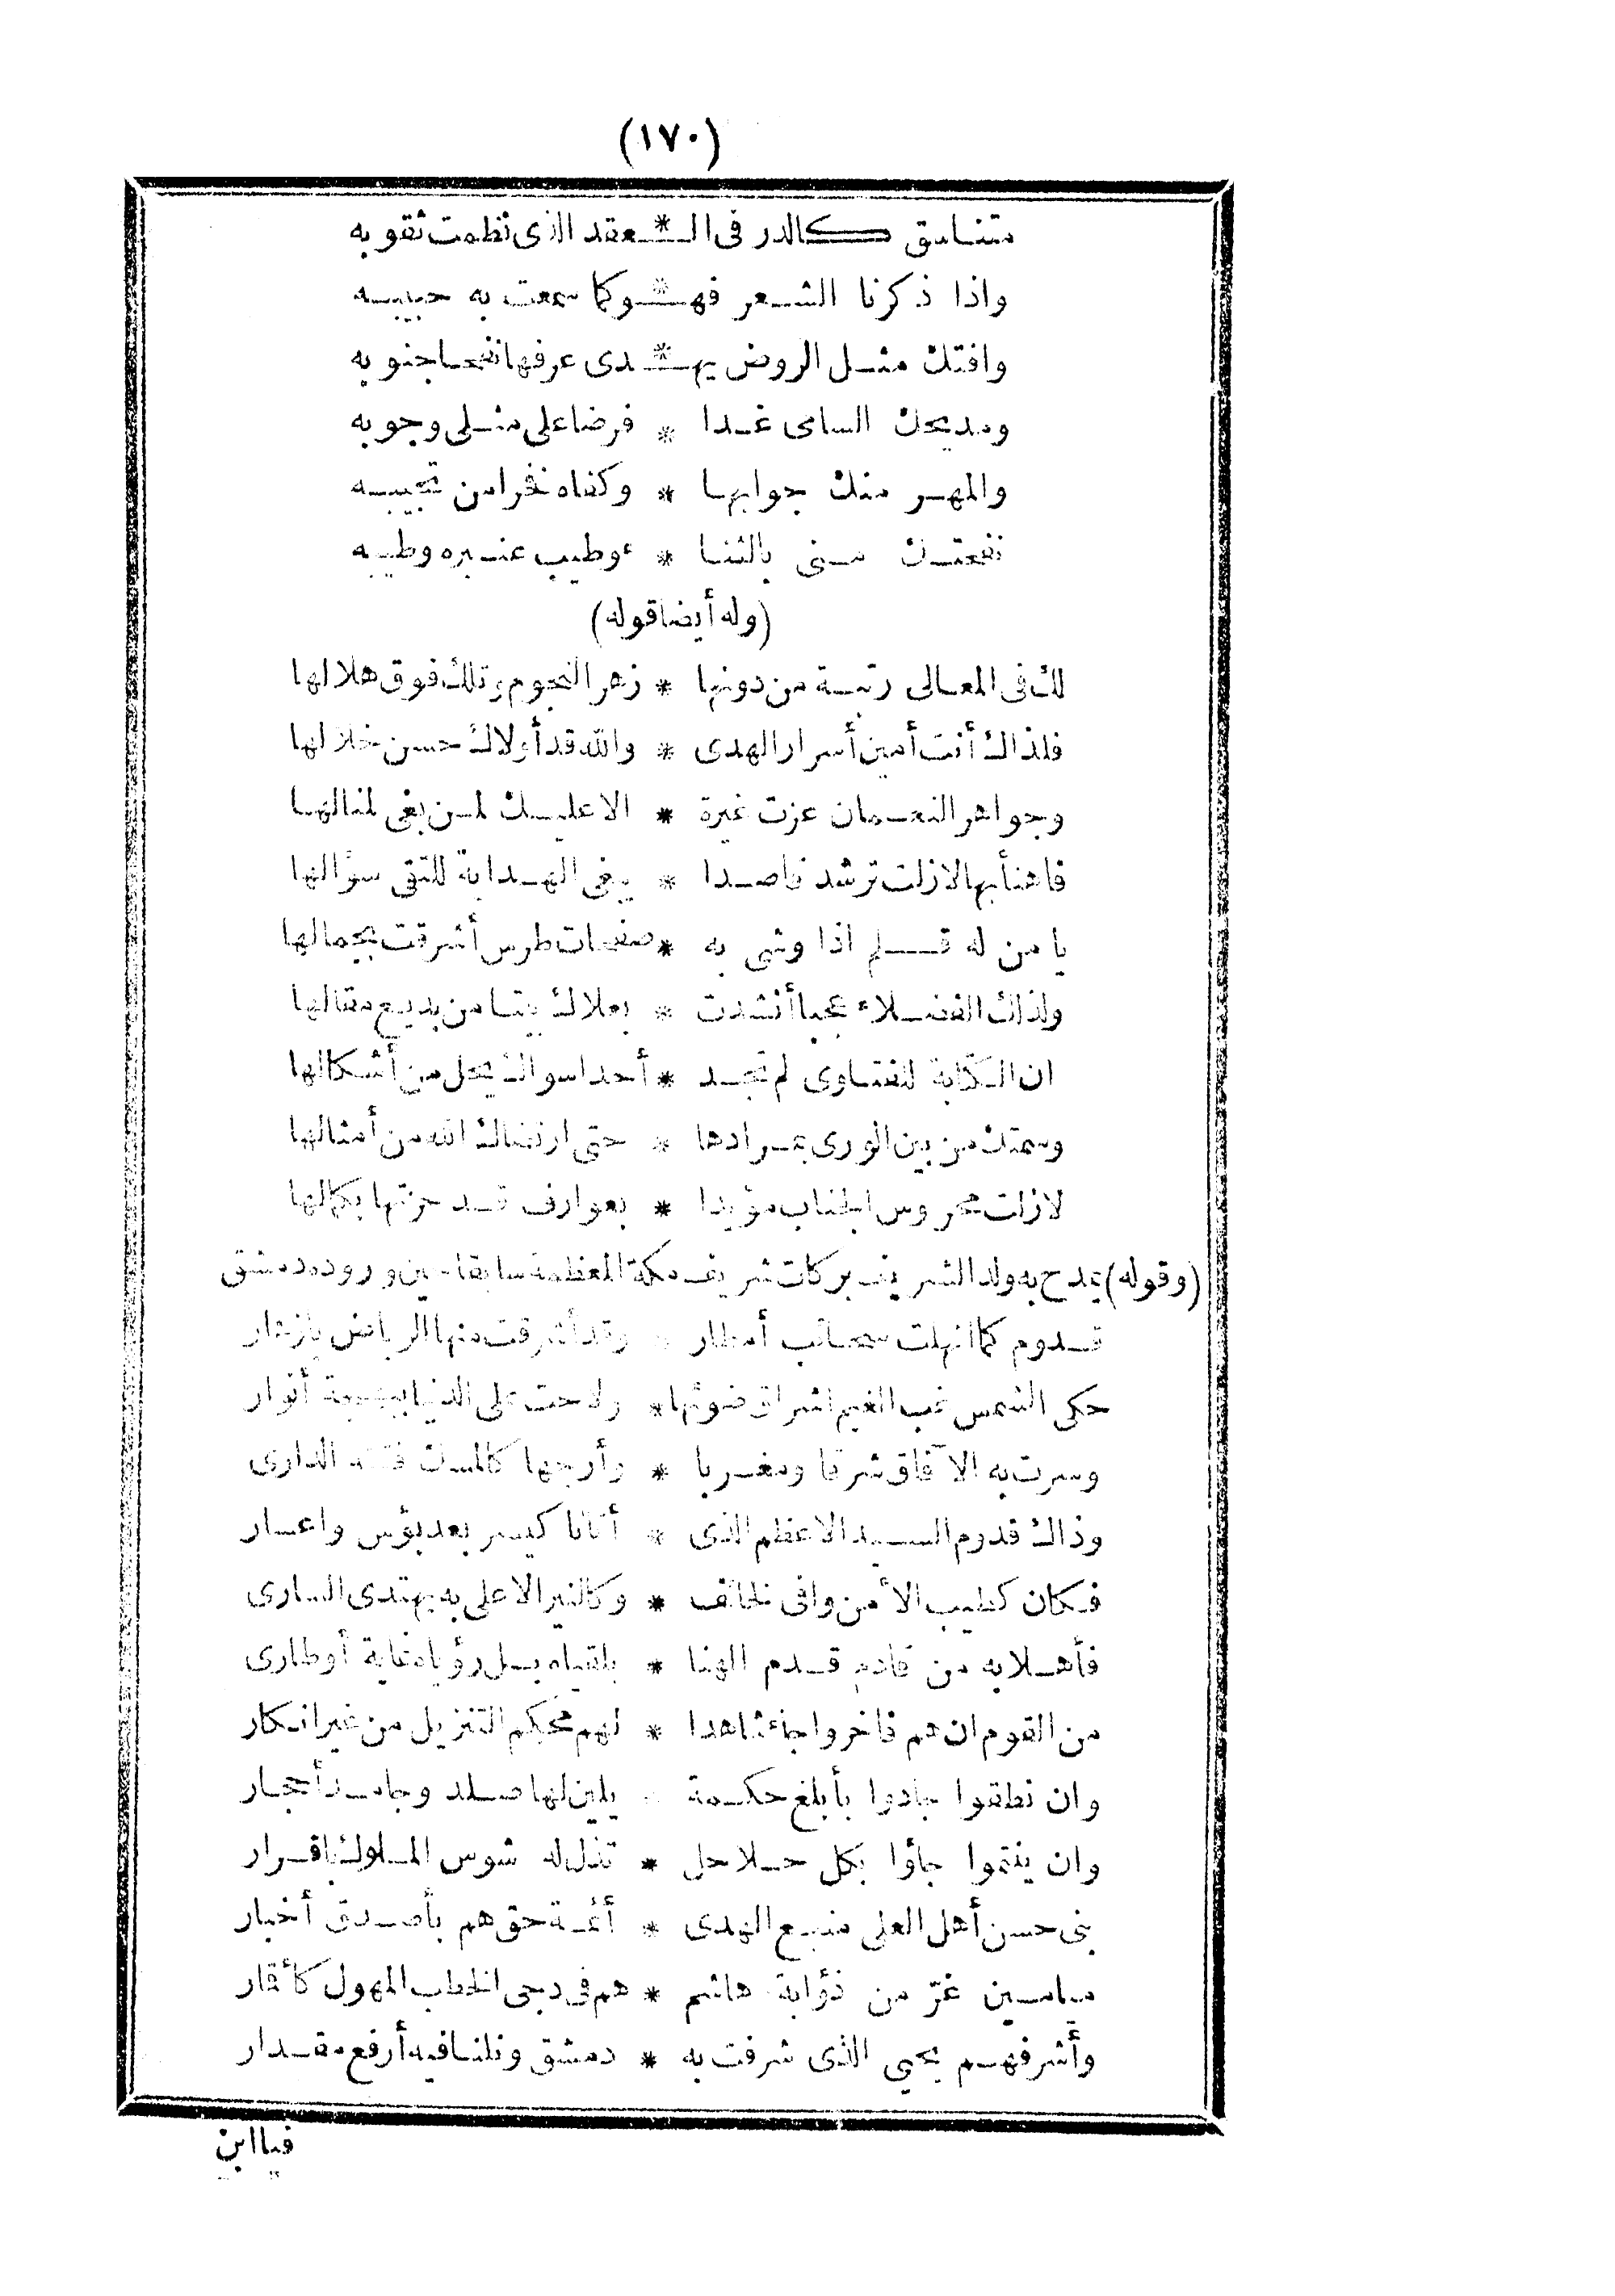 (١٧٠)
متناسق كالدر فى الـ * ـعقد الذى نظمت ثقوبه
واذا ذكرنا الشعر فهـ * ـو كما سمعت به حبيبه
وافتك مثل الروض يهـ * ـدى عرفها نفحا جنوبه
ومديحك السامى غدا * فرضا على مثلى وجوبه
والمهر منك جوابها * وكفاه فخرا من تجيبه
نفحتك منى بالثنا * ء وطيب عنبره وطيبه
(وله أيضا قوله)
لك فى المعالى رتبة من دونها * زهر النجوم وتلك فوق هلالها
فلذاك أنت أمين أسرار الهدى * والله قد أولاك حسن خلالها
وجواهر النعمان عزت غيرة * الا عليك لمن بغى لمنالها
فاهنأ بها لازلت ترشد قاصدا * يبغى الهداية للتقى سؤالها
يا من له قلم اذا وشى به * صفحات طرس أشرقت بجمالها
ولذاك الفضلاء عجبا أنشدت * بعلاك بيتا من بديع مقالها
ان الكتابة للفتاوى لم تجد * أحدا سواك يحل من أشكالها
وسمتك من بين الورى بمرادها * حتى ارتضاك الله من أمثالها
لازلت محروس الجناب مؤيدا * بعوارف قد حزتها بكمالها
(وقوله) يمدح به ولد الشريف بركات شريف مكة المعظمة سابقا حين وروده دمشق
قدوم كما انهلت سحائب أمطار * وقد أشرقت منها الرياض بازهار
حكى الشمس غب الغيم اشراق ضوئها * ولاحت على الدنيا ببهجة أنوار
وسرت به الآفاق شرقا ومغربا * وأرجها كالمسك الدارى
وذاك قدوم السيد الاعظم الذى * أتانا كيسر بعد بؤس واعسار
فكان كطيب الأمن وافى لخائف * وكالنير الاعلى به يهتدى السارى
فأهلا به من قادم قدم الهنا * بلقياه بل رؤياه غاية أوطارى
من القوم ان هم فاخروا جاء شاهدا * لهم محكم التنزيل من غير انكار
وان نطقوا جادوا بأبلغ حكمة * يلين لها صلد وجامد أحجار
وان ينتموا جاؤا بكل حلاحل * تذل له شوس الملوك باقرار
بنى حسن أهل العلى منبع الهدى * أئمة حق هم بأصدق أخبار
ميامين غرّ من ذؤابة هاشم * هم فى دجى الخطب المهول كأقمار
وأشرفهم يحيى الذى شرفت به * دمشق ونلنا فيه أرفع مقدار
فيا ابن